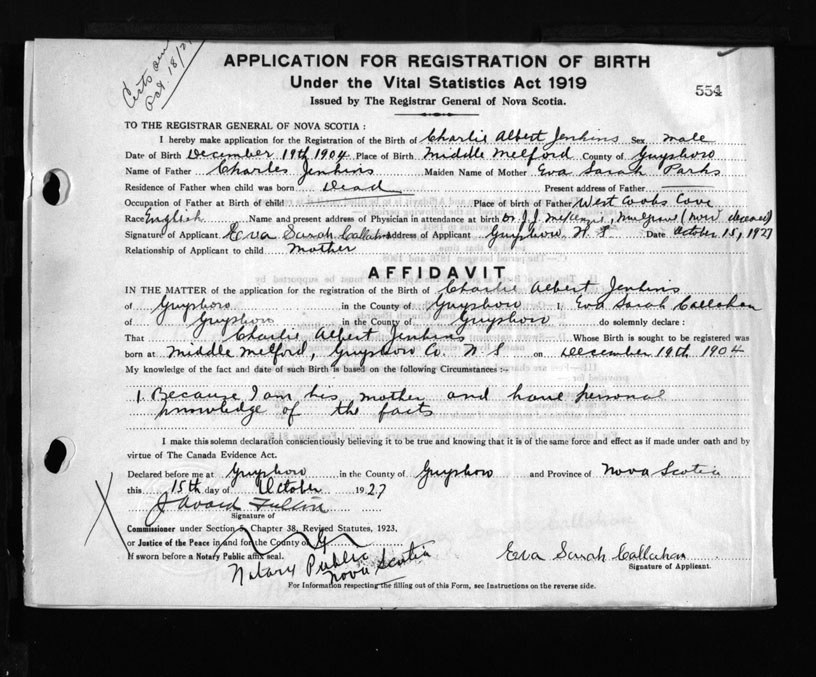 Oct. 18/27
APPLICATION FOR REGISTRATION OF BIRTH
Under the Vital Statistics Act 1919
554
Issued by The Registrar General of Nova Scotia.
TO THE REGISTRAR GENERAL OF NOVA SCOTIA :
I hereby make application for the Registration of the Birth of Charlie Albert Jenkins Sex male
Date of Birth December 19th 1904 Place of Birth Middle Melford County of Guysboro
Name of Father Charles Jenkins Maiden Name of Mother Eva Sarah Parks
Residence of Father when child was born Dead Present address of Father
Occupation of Father at Birth of child Place of birth of Father West Cooks Cove
Race English Name and present address of Physician in attendance at birth Dr. J.J. McKenzie, Mulgrave (now deceased)
Signature of Applicant Eva Sarah Callahan Address of Applicant Guysboro N S Date October 15, 1927
Relationship of Applicant to child Mother
AFFIDAVIT
IN THE MATTER of the application for the registration of the Birth of Charlie Albert Jenkins
of Guysboro in the County of Guysboro I Eva Sarah Callahan
of Guysboro in the County of Guysboro do solemnly declare :
That Charlie Albert Jenkins Whose Birth is sought to be registered was
born at Middle Melford, Guysboro Co. N S on December 19th 1904
My knowledge of the fact and date of such Birth is based on the following Circumstances :-
1. Because I am his mother and have personal
knowledge of the facts
I make this solemn declaration conscientiously believing it to be true and knowing that it is of the same force and effect as if made under oath and by
virtue of The Canada Evidence Act.
Declared before me at Guysboro in the County of Guysboro and Province of Nova Scotia
this 15th day of October 1927
Signature of
Commissioner under Section 5, Chapter 38, Revised Statutes, 1923,
or Justice of the Peace in and for the County of G
If sworn before a Notary Public affix seal.
Notary Public
Nova Scotia
Eva Sarah Callahan
Signature of Applicant.
For Information respecting the filling out of this Form, see Instructions on the reverse side.